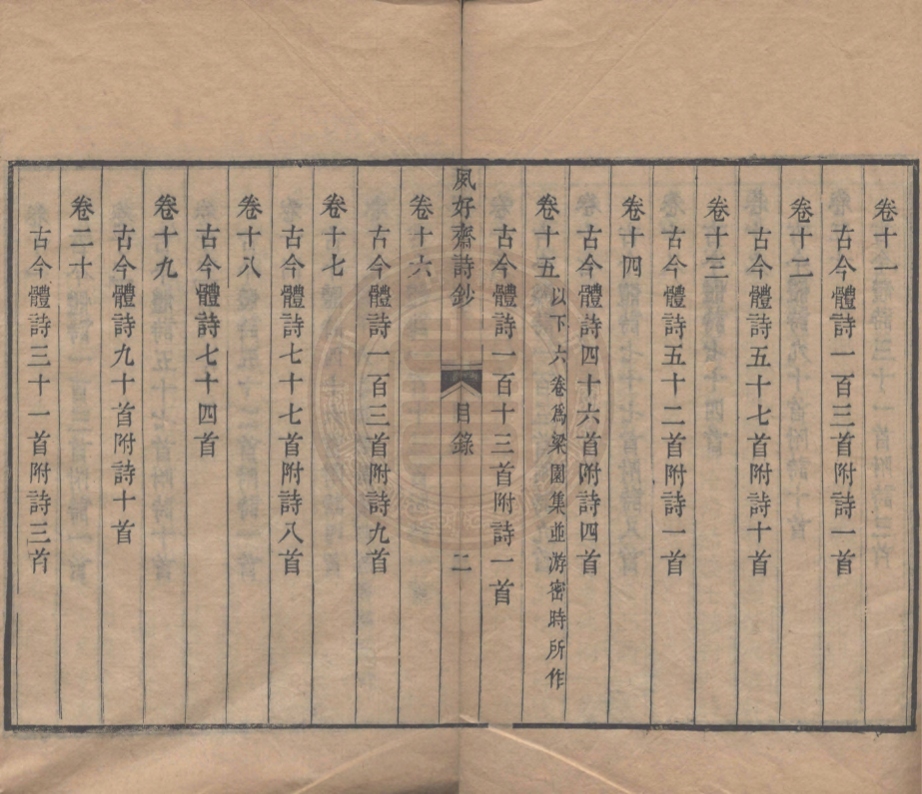 卷十一
古今體詩一百三首附詩一首
卷十二
古今體詩五十七首附詩十首
卷十三
古今體詩五十二首附詩一首
卷十四
古今體詩四十六首附詩四首
卷十五 以下六卷爲梁園集並游密時所作
古今體詩一百十三首附詩一首
夙好齋詩鈔 目錄 二
卷十六
古今體詩一百三首附詩九首
卷十七
古今體詩七十七首附詩八首
卷十八
古今體詩七十四首
卷十九
古今體詩九十首附詩十首
卷二十
古今體詩三十一首附詩三首